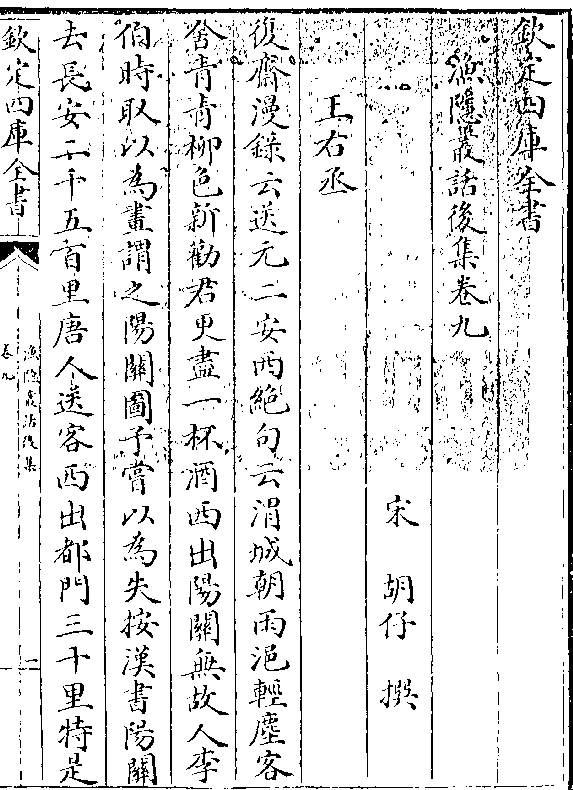 欽定四庫全書
漁隱叢話後集卷九
宋 胡仔 撰
王右丞
復齋漫錄云送元二安西絶句云渭城朝雨浥輕塵客
舍青青柳色新勸君更盡一杯酒西出陽關無故人李
伯時取以為畫謂之陽關圖予嘗以為失按漢書陽關
去長安二千五百里唐人送客西出都門三十里特是
欽定四庫全書
漁隱叢話後集
卷九
一